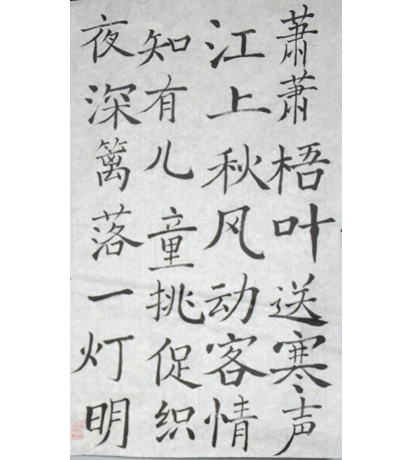 萧萧梧叶送寒声
江上秋风动客情
知有儿童挑促织
夜深篱落一灯明